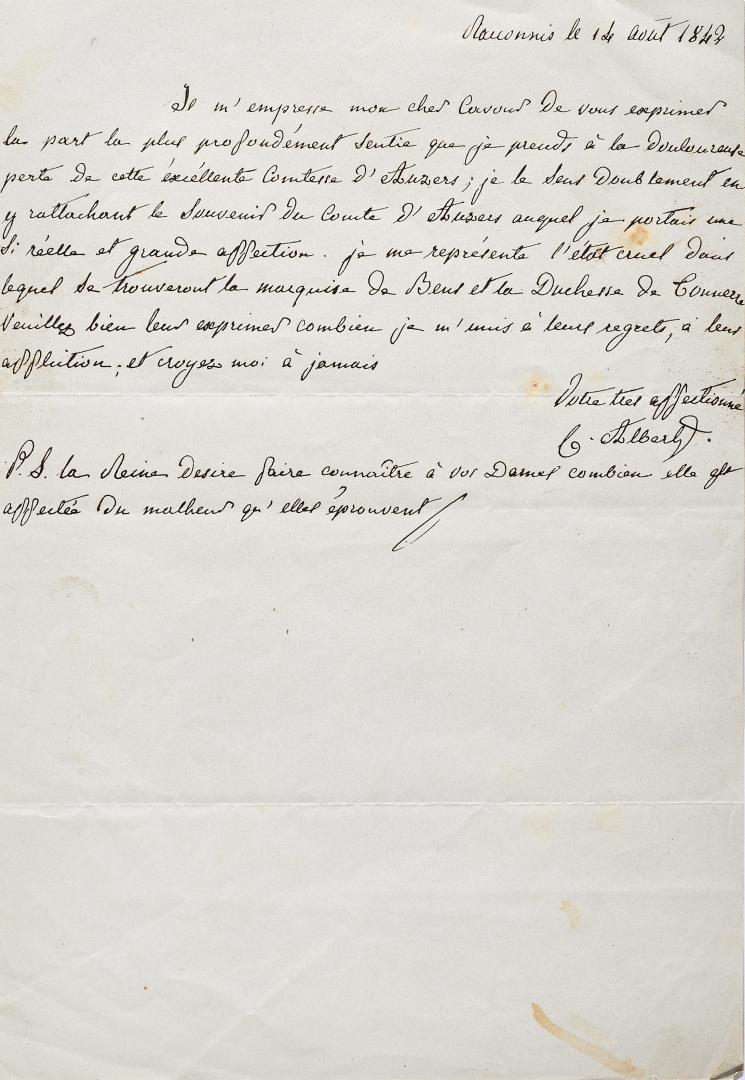 Raconnis le 14 août 1842
Je m'empresse mon cher Cavour de vous exprimer
la part la plus profondément sentie que je prends à la douloureuse
perte de cette éxcéllente Comtesse d'Auzers; je le sens doublement en
y rattachant le souvenir du Comte d'Auzers auquel je portais une
si réelle et grande affection. je me représente l'état cruel dans
lequel se trouveront la marquise de Bens et la Duchesse de Tonnerre
Veuillez bien leur exprimer combien je m'unis à leurs regrets, à leur
affliction; et croyez moi à jamais
Votre tres affectionné
C. Albert.
P. S. la Reine desire faire connaître à vos Dames combien elle est
affectée du malheur qu'elles éprouvent